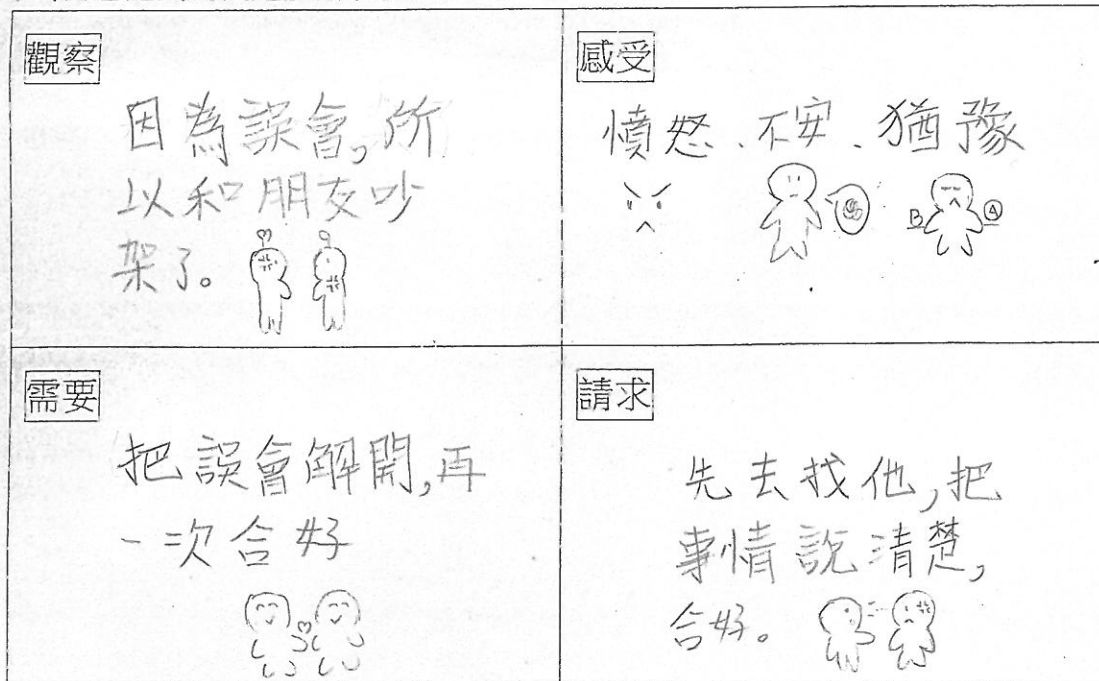 觀察
因為誤會,所
以和朋友吵
架了。
感受
憤怒、不安、猶豫
B A
需要
把誤會解開,再
一次合好
請求
先去找他,把
事情說清楚,
合好。